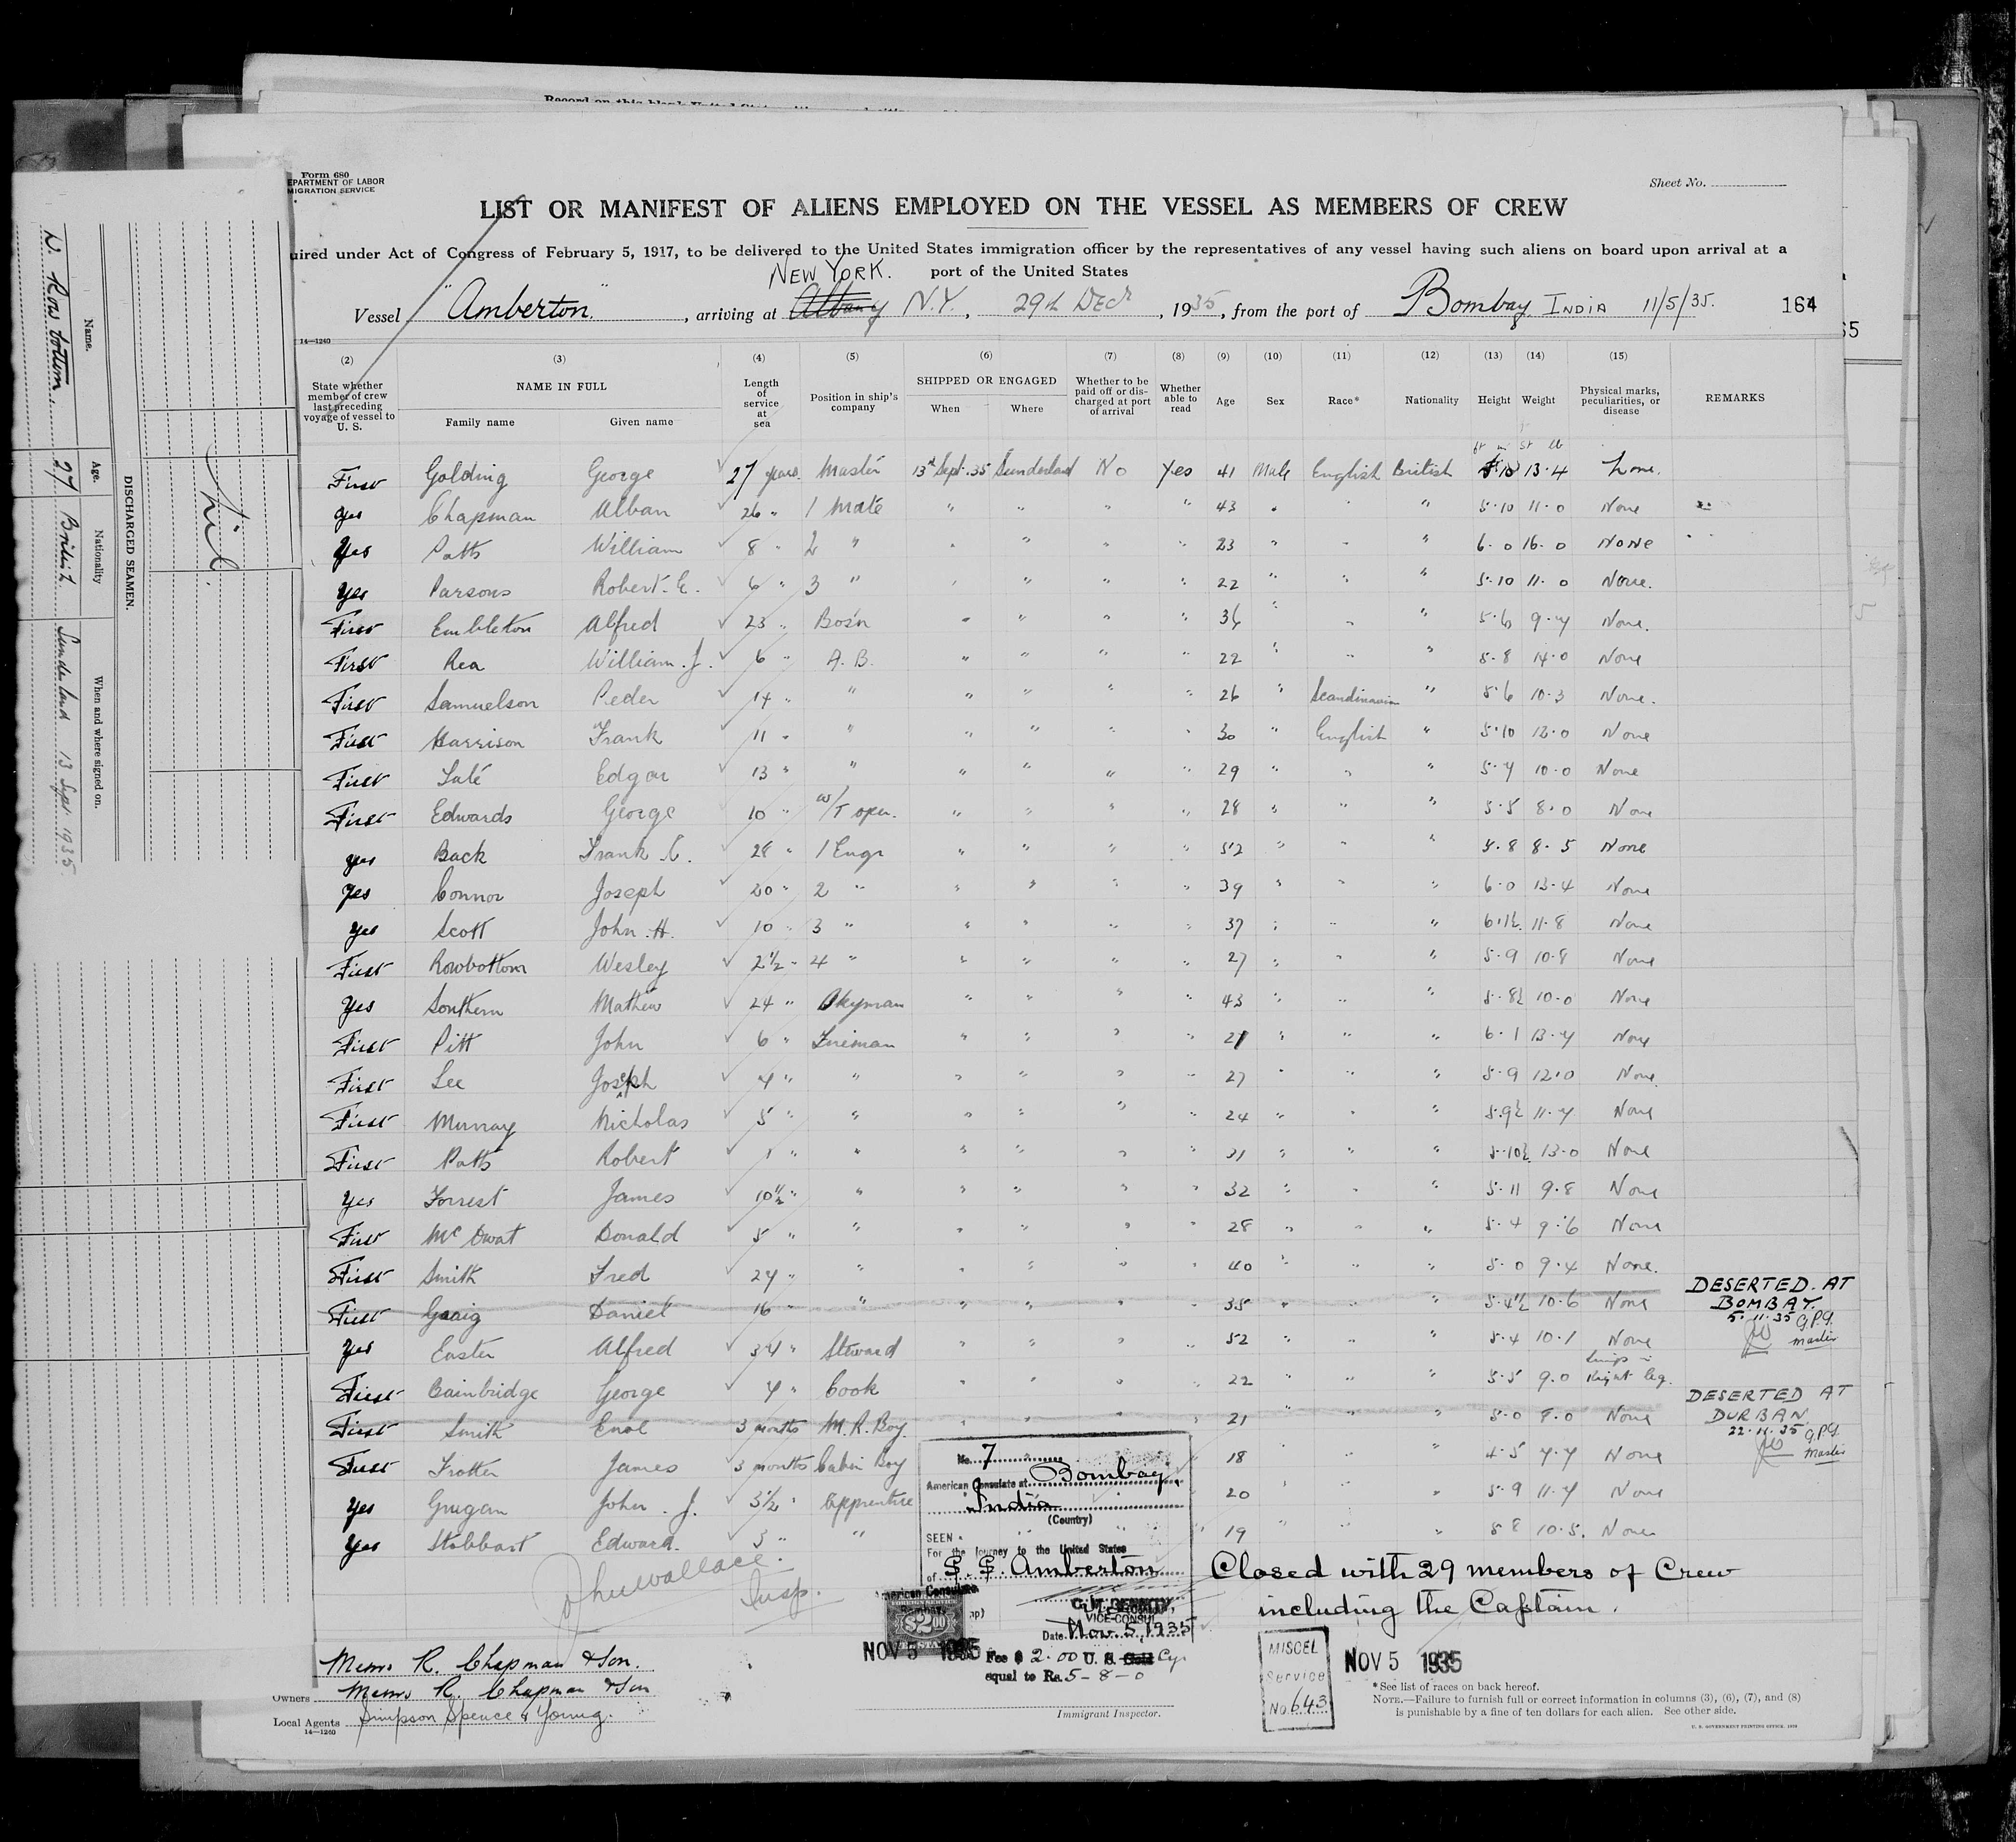 Form 680
EPARTMENT OF LABOR
MIGRATION SERVICE
Sheet No.
LIST OR MANIFEST OF ALIENS EMPLOYED ON THE VESSEL AS MEMBERS OF CREW
uired under Act of Congress of February 5, 1917, to be delivered to the United States immigration officer by the representatives of any vessel having such aliens on board upon arrival at a
port of the United States
NEW YORK.
Vessel "Amberton." , arriving at Albany N.Y. , 29th Decr , 1935, from the port of Bombay INDIA 11/5/35. 164
14—1240
(2) (3) (4) (5) (6) (7) (8) (9) (10) (11) (12) (13) (14) (15)
State whether member of crew last preceding voyage of vessel to U. S.
NAME IN FULL
Family name Given name
Length of service at sea
Position in ship's company
SHIPPED OR ENGAGED
When Where
Whether to be paid off or discharged at port of arrival
Whether able to read
Age Sex Race* Nationality Height Weight
Physical marks, peculiarities, or disease
REMARKS
First Golding George 27 years Master 13th Sept. 35 Sunderland No Yes 41 Male English British 5.10 13.4 None.
Yes Chapman Alban 26 " 1 Mate " " " " 43 " " " 5.10 11.0 None
Yes Potts William 8 " 2 " " " " " 23 " " " 6.0 16.0 None
Yes Parsons Robert. E. 6 " 3 " " " " " 22 " " " 5.10 11.0 None.
First Embleton Alfred 23 " Bos'n " " " " 36 " " 5.6 9.7 None.
First Rea William. J. 6 " A.B. " " " " 22 " " " 5.8 14.0 None
First Samuelson Peder 14 " " " " " " 26 " Scandinavian " 5.6 10.3 None.
First Harrison Frank 11 " " " " " " 30 " English " 5.10 12.0 None
First Tate Edgar 13 " " " " " " 29 " " " 5.7 10.0 None
First Edwards George 10 " W/T oper. " " " " 28 " " " 5.5 8.0 None
Yes Back Frank C. 28 " 1 Engr " " " " 52 " " " 5.8 8.5 None
Yes Connor Joseph 20 " 2 " " " " " 39 " " " 6.0 13.4 None
Yes Scott John. H. 10 " 3 " " " " " 37 " " " 6.1½ 11.8 None
First Rowbottom Wesley 2½ " 4 " " " " " 27 " " " 5.9 10.8 None
Yes Southern Mathew 24 " Dkyman " " " " 43 " " " 5.8½ 10.0 None
First Pitt John 6 " Fireman " " " " 21 " " " 6.1 13.7 None
First Lee Joseph 7 " " " " " " 27 " " " 5.9 12.0 None.
First Murray Nicholas 5 " " " " " " 24 " " " 5.9½ 11.7 None
First Potts Robert 1 " " " " " " 21 " " " 5.10½ 13.0 None
Yes Forrest James 10½ " " " " " " 32 " " " 5.11 9.8 None
First McOwat Donald 5 " " " " " " 28 " " " 5.4 9.6 None
First Smith Fred 27 " " " " " " 40 " " " 5.0 9.4 None.
First Graig Daniel 16 " " " " " " 35 " " " 5.4½ 10.6 None
DESERTED. AT
BOMBAY.
5.11.35 G.P.G.
Master
Yes Easter Alfred 37 " Steward " " " " 52 " " " 5.4 10.1 None
First Bainbridge George 7 " Cook " " " " 22 " " " 5.5 9.0 Right leg.
First Smith Enol 3 months M.R. Boy. " " " " 21 " " " 5.0 8.0 None
DESERTED AT
DURBAN.
22.11.35 G.P.G.
Master
First Trotter James 3 months Cabin Boy 18 " " " 4.5 7.7 None
Yes Grugan John. J. 3½ " Apprentice 20 " " " 5.9 11.7 None
Yes Stobbart Edward. 3 " " 19 " " " 5 8 10.5. None
No. 7
American Consulate at Bombay,
India
(Country)
SEEN
For the journey to the United States
of S.S. Amberton
VICE-CONSUL
Date Nov. 5, 1935
Fee $ 2.00 U. S. Gold Cy.
equal to Rs. 5-8-0
American Consulate
FOREIGN SERVICE
$2.00
NOV 5 1935
Closed with 29 members of Crew
including the Captain.
Jhu Wallace.
Insp.
Messrs R. Chapman & Son.
Owners Messrs R. Chapman & Son
Local Agents Simpson Spence & Young.
14—1240
Immigrant Inspector.
MISCEL
Service
No 643
NOV 5 1935
*See list of races on back hereof.
NOTE.—Failure to furnish full or correct information in columns (3), (6), (7), and (8)
is punishable by a fine of ten dollars for each alien. See other side.
U. S. GOVERNMENT PRINTING OFFICE
DISCHARGED SEAMEN.
Name. Age. Nationality When and where signed on.
W. Rowbottom. 27 British. Sunderland 13 Sept 1935
Nil.
65